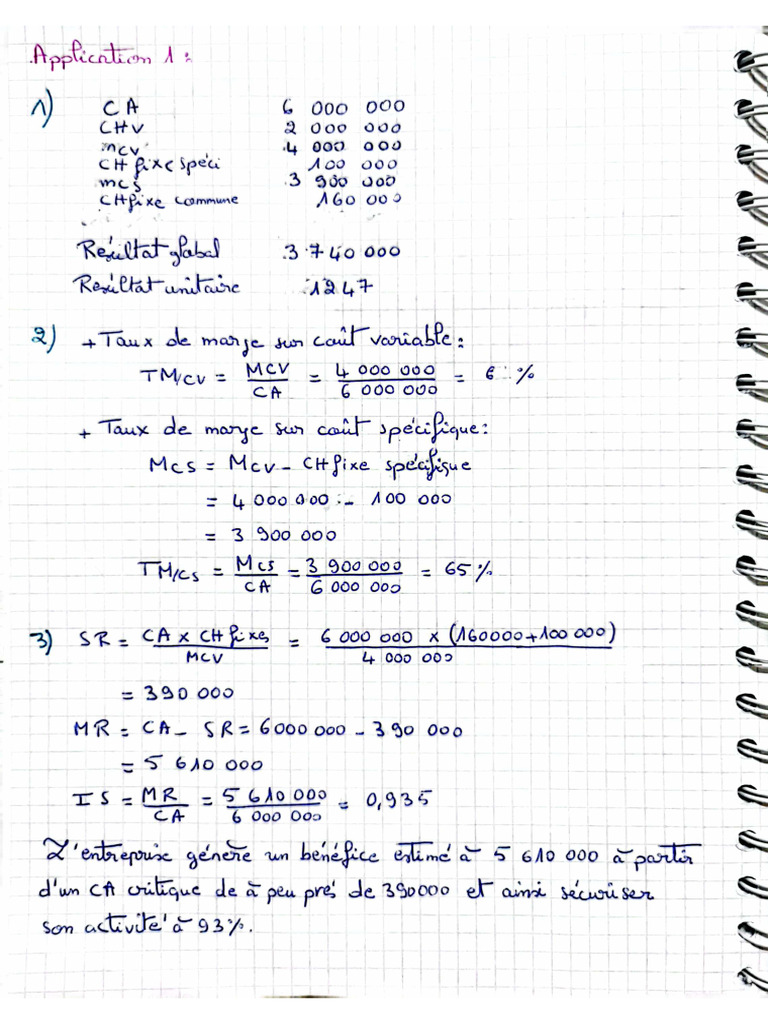 Application 1 :
1) CA 6 000 000
CHV 2 000 000
mcv 4 000 000
CH fixe spéci 100 000
mcs 3 900 000
CH fixe commune 160 000
Résultat global 3 740 000
Résultat unitaire 1247
2) + Taux de marge sur coût variable :
TM/CV = MCV/CA = 4 000 000/6 000 000 = 6 %
+ Taux de marge sur coût spécifique :
MCS = MCV - CH fixe spécifique
= 4 000 000 - 100 000
= 3 900 000
TM/CS = MCS/CA = 3 900 000/6 000 000 = 65 %
3) SR = CA x CH fixes/MCV = 6 000 000 x (160000 + 100 000)/4 000 000
= 390 000
MR = CA - SR = 6000 000 - 390 000
= 5 610 000
IS = MR/CA = 5 610 000/6 000 000 = 0,935
L'entreprise génère un bénéfice estimé à 5 610 000 à partir
d'un CA critique de à peu prés de 390000 et ainsi sécuriser
son activité à 93%.